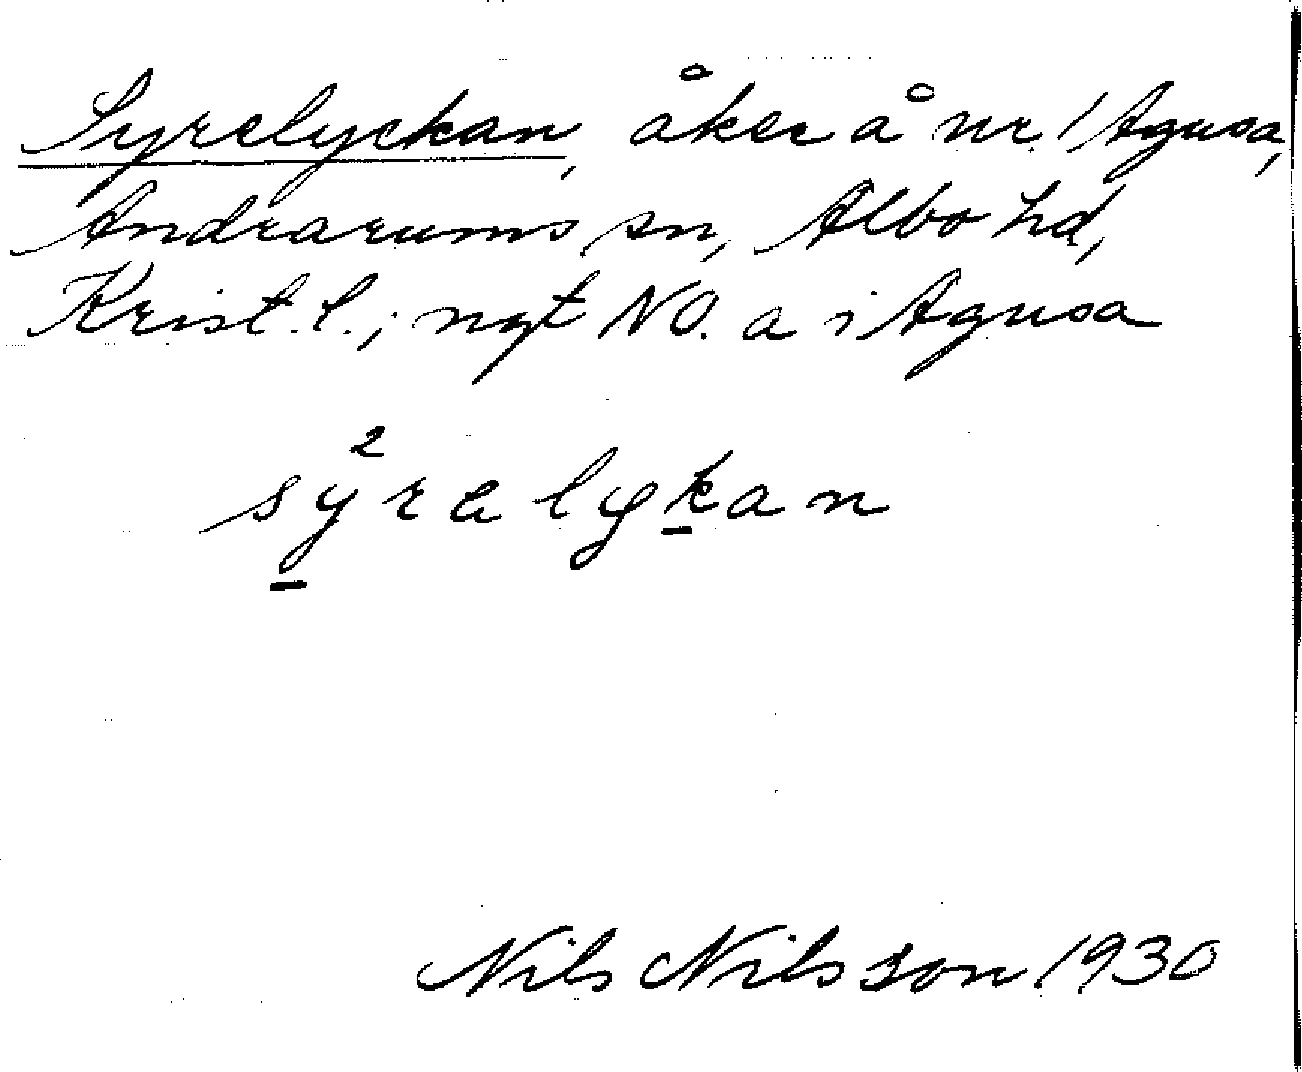 Syrelyckan, åker å nr 1 Agusa,
Andrarums sn, Albo hd,
Krist. l.; ngt NO. a i Agusa
sy²ralykan
Nils Nilsson 1930